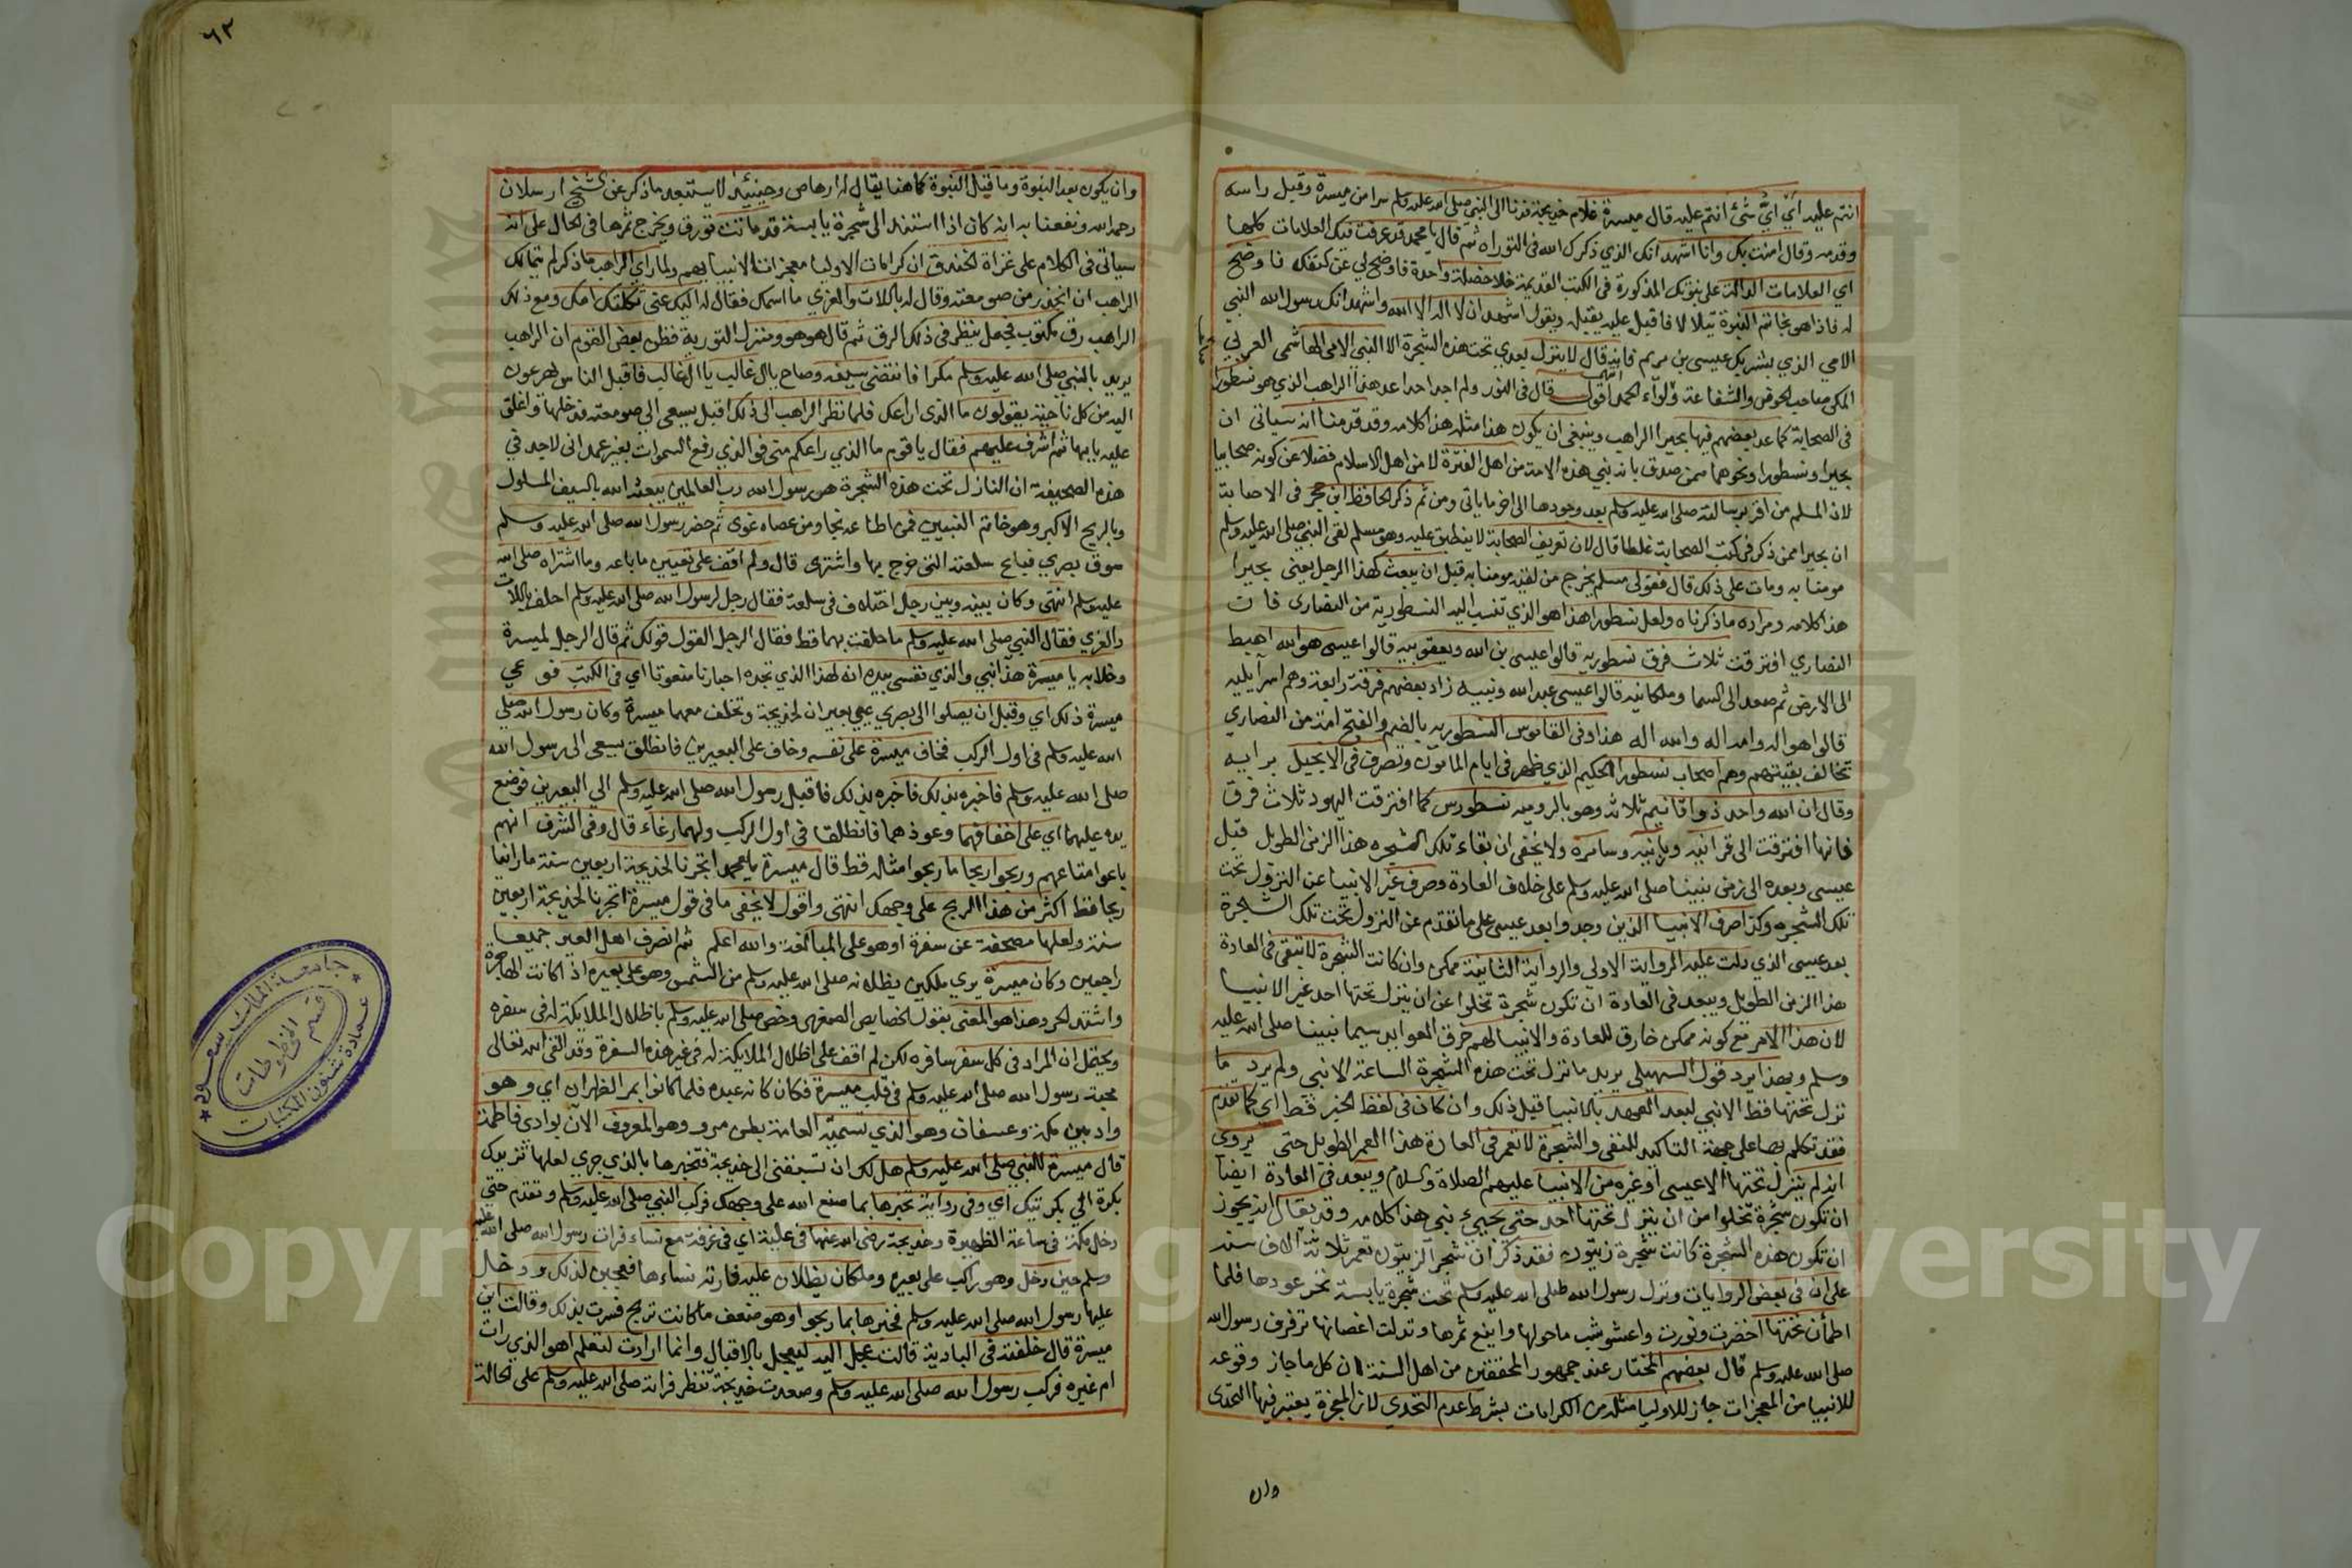 انتم عليه أيّ شئ انتم عليه قال ميسرة غلام خديجة فدنا الى النبي صلى الله عليه وسلم سرا من ميسرة وقبل راسه
وقدمه وقال امنت بك وانا اشهد انك الذي ذكرك الله فى التوراه ثم قال يا محمد قد عرفت فيك العلامات كلها
اي العلامات الدالة على نبوتك المذكورة فى الكتب القديمة خلا خصلة واحدة فاوضح لي عن كتفك فاوضح
له فاذا هو بخاتم النبوة يتلالا فاقبل عليه يقبله ويقول اشهد ان لا اله الا الله واشهد انك رسول الله النبي
الامي الذي بشر بك عيسى بن مريم فانه قال لا ينزل بعدي تحت هذه الشجرة الا النبي الامي الهاشمي العربي
المكي صاحب الحوض والشفاعة ولوآء الحمد اقول قال فى النور ولم اجد احدا عد هذا الراهب الذي هو نسطورا
فى الصحابة كما عد بعضهم فيها بحيرا الراهب وينبغى ان يكون هذا مثله هذا كلامه وقد قدمنا انه سياتى ان
بحيرا ونسطورا ونحوهما ممن صدق بانه نبي هذه الامة من اهل الفترة لا من اهل الاسلام فضلا عن كونه صحابيا
لان المسلم من اقر برسالته صلى الله عليه وسلم بعد وجودها الى اخر ما ياتى ومن ثم ذكر الحافظ ابن حجر فى الاصابة
ان بحيرا ممن ذكر فى كتب الصحابة غلطا قال لان تعريف الصحابة لا ينطبق عليه وهو مسلم لقى النبي صلى الله عليه وسلم
مومنا به ومات على ذلك قال فقولى مسلم يخرج من لقيه مومنا به قبل ان يبعث كهذا الرجل يعنى بحيرا
هذا كلامه ومراده ما ذكرناه ولعل نسطورا هذا هو الذي تنسب اليه النسطورية من النصارى فان
النصاري افترقت ثلاث فرق نسطوريه قالوا عيسى بن الله ويعقوبيه قالوا عيسى هو الله اهبط
الى الارض ثم صعد الى السما وملكانيه قالوا عيسى عبد الله ونبيه زاد بعضهم فرقة رابعة وهم اسرآيليه
قالوا هو اله وامه اله والله اله هذا وفى القاموس النسطوريه بالضم والفتح امة من النصاري
تخالف بقيتهم وهم اصحاب نسطورا الحكيم الذي ظهر فى ايام المامون وتصرف فى الانجيل برايه
وقال ان الله واحد ذوا اقانيم ثلاثه وهو بالروميه نسطورس كما افترقت اليهود ثلاث فرق
فانها افترقت الى قرائيه وربانيه وسامره ولا يخفى ان بقاء تلك الشجره هذا الزمن الطويل قبل
عيسى وبعده الى زمن نبينا صلى الله عليه وسلم على خلاف العادة وصرف غير الانبيا عن النزول تحت
تلك الشجره وكذا صرف الانبيا الذين وجدوا بعد عيسى على ما تقدم عن النزول تحت تلك الشجرة
بعد عيسى الذي دلت عليه الرواية الاولى والرواية الثانية ممكن وان كانت الشجرة لا تبقى فى العادة
هذا الزمن الطويل ويبعد فى العادة ان تكون شجرة تخلوا عن ان ينزل تحتها احد غير الانبيا
لان هذا الامر مع كونه ممكن خارق للعادة والانبيا لهم خرق العوايد سيما نبينا صلى الله عليه
وسلم وبهذا يرد قول السهيلى يريد ما نزل تحت هذه الشجرة الساعة الا نبي ولم يرد ما
نزل تحتها قط الا نبي لبعد العهد بالانبيا قبل ذلك وان كان فى لفظ الخبر قط اي كما تقدم
فقد تكلم بها على جهة التاكيد للنفى والشجرة لا تعمر فى العادة هذا العمر الطويل حتى يروى
انه لم ينزل تحتها الا عيسى او غيره من الانبيا عليهم الصلاة والسلام ويبعد فى العادة ايضا
ان تكون شجرة تخلوا من ان ينزل تحتها احد حتى يجيئ نبي هذا كلامه وقد يقال انه يجوز
ان تكون هذه الشجرة كانت شجرة زيتون فقد ذكر ان شجر الزيتون تعمر ثلاثة آلاف سنه
على ان فى بعض الروايات ونزل رسول الله صلى الله عليه وسلم تحت شجرة يابسة نخر عودها فلما
اطمأن تحتها اخضرت ونورت واعشوشب ما حولها واينع ثمرها وتدلت اغصانها ترفرف رسول الله
صلى الله عليه وسلم قال بعضهم المختار عند جمهور المحققين من اهل السنة ان كل ما جاز وقوعه
للانبيا من المعجزات جاز للاوليا مثله من الكرامات بشرط عدم التحدي لان المعجزة يعتبر فيها التحدى
وان
٦٢
وان يكون بعد النبوة وما قبل النبوة كما هنا يقال له ارهاص وحينئذ لا يستبعد ما ذكر عن الشيخ ارسلان
رحمه الله ونفعنا به انه كان اذا استند الى شجرة يابسة قد ماتت تورق ويخرج ثمرها فى الحال على انه
سياتى فى الكلام على غزاة الخندق ان كرامات الاوليا معجزات الانبيا بهم ولما راى الراهب ما ذكر لم يتمالك
الراهب ان انحدر من صومعته وقال له باللات والعزي ما اسمك فقال له اليك عنى ثكلتك امك ومع ذلك
الراهب رق مكتوب فجعل ينظر فى ذلك الرق ثم قال هو هو ومنزل التورية فظن بعض القوم ان الراهب
يريد بالنبي صلى الله عليه وسلم مكرا فانتضى سيفه وصاح يال غالب يا ال غالب فاقبل الناس يهرعون
اليه من كل ناحية يقولون ما الذى راعك فلما نظر الراهب الى ذلك اقبل يسعى الى صومعته فدخلها واغلق
عليه بابها ثم اشرف عليهم فقال يا قوم ما الذي راعكم منى فو الذي رفع السموات بغير عمد انى لاجد في
هذه الصحيفة ان النازل تحت هذه الشجرة هو رسول الله رب العالمين يبعثه الله بالسيف المسلول
وبالريح الاكبر وهو خاتم النبيين فمن اطاعه نجا ومن عصاه غوى ثم حضر رسول الله صلى الله عليه وسلم
سوق بصري فباع سلعته التى خرج بها واشترى قال ولم اقف على تعيين ما باعه وما اشتراه صلى الله
عليه وسلم انتهى وكان بينه وبين رجل اختلاف فى سلعة فقال رجل لرسول الله صلى الله عليه وسلم احلف باللات
والعزي فقال النبي صلى الله عليه وسلم ما حلفت بهما قط فقال الرجل القول قولك ثم قال الرجل لميسرة
وخلا به يا ميسرة هذا نبي والذي نفسى بيده انه لهذا الذي تجده احبارنا منعوتا اي فى الكتب فوعى
ميسرة ذلك اي وقبل ان يصلوا الى بصري عيى بعيران لخديجة وتخلف معهما ميسرة وكان رسول الله صلى
الله عليه وسلم فى اول الركب فخاف ميسرة على نفسه وخاف على البعيرين فانطلق يسعى الى رسول الله
صلى الله عليه وسلم فاخبره بذلك فاخبره بذلك فاقبل رسول الله صلى الله عليه وسلم الى البعيرين فوضع
يده عليهما اي على اخفافهما وعوذهما فانطلقا فى اول الركب ولهما رغاء قال وفى الشرف انهم
باعوا متاعهم وربحوا ربحا ما ربحوا مثله قط قال ميسرة يا محمد اتجرنا لخديجة اربعين سنة ما راينا
ربحا قط اكثر من هذا الربح على وجهك انتهى واقول لا يخفى ما فى قول ميسرة اتجرنا لخديجة اربعين
سنة ولعلها مصحفة عن سفرة او هو على المبالغة والله اعلم ثم انصرف اهل العير جميعا
راجعين وكان ميسرة يري ملكين يظلانه صلى الله عليه وسلم من الشمس وهو على بعيره اذا كانت الهاجرة
واشتد الحر وهذا هو المعنى بقول الخصايص الصغرى وخص صلى الله عليه وسلم باظلال الملايكة له فى سفره
ويحتمل ان المراد فى كل سفر سافره لكن لم اقف على اظلال الملايكة له فى غير هذه السفرة وقد القى الله تعالى
محبة رسول الله صلى الله عليه وسلم فى قلب ميسرة فكان كانه عبده فلما كانوا بمر الظهران اي وهو
واد بين مكة وعسفان وهو الذي تسميه العامة بطن مرو وهو المعروف الآن بوادى فاطمة
قال ميسرة للنبي صلى الله عليه وسلم هل لك ان تسبقنى الى خديجة فتخبرها بالذي جرى لعلها تزيدك
بكرة الى بكرتيك اي وفى رواية تخبرها بما صنع الله على وجهك فركب النبي صلى الله عليه وسلم وتقدم حتى
دخل مكة فى ساعة الظهيرة وخديجة رضى الله عنها فى علية اي فى غرفة مع نساء فرات رسول الله صلى الله عليه
وسلم حين دخل وهو راكب على بعيره وملكان يظلان عليه فارته نساءها فعجبن لذلك ودخل
عليها رسول الله صلى الله عليه وسلم فخبرها بما ربحوا وهو ضعف ما كانت تربح فسرت بذلك وقالت اين
ميسرة قال خلفته فى البادية قالت عجل اليه ليعجل بالاقبال وانما ارادت لتعلم اهو الذي رات
ام غيره فركب رسول الله صلى الله عليه وسلم وصعدت خديجة تنظر فراته صلى الله عليه وسلم على الحالة
جامعة الملك سعود
قسم المخطوطات
عمادة شئون المكتبات
Copyright © King Saud University